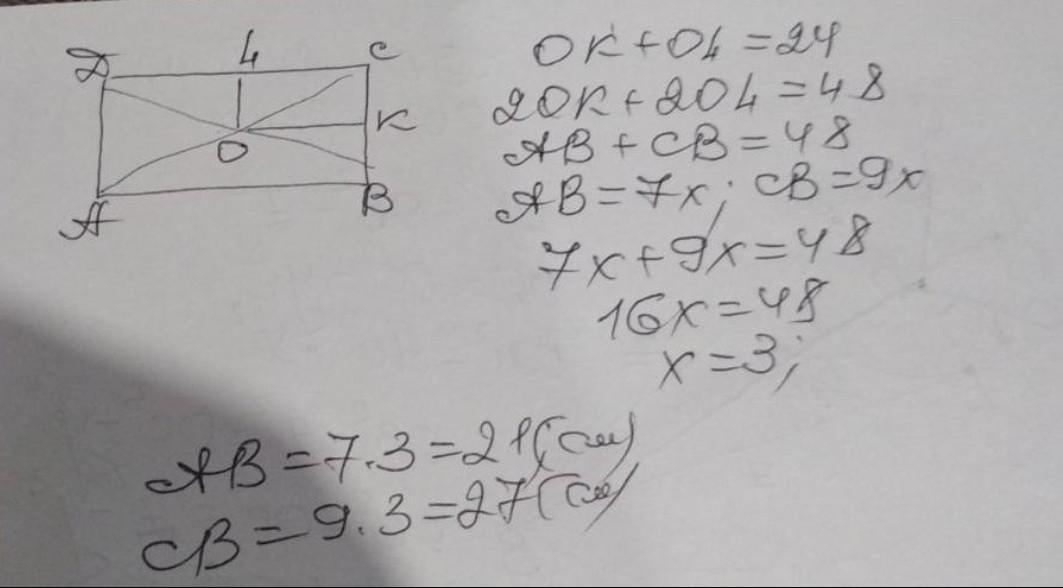 D
4
C
K
O
A
B
OK+O4=24
2OK+2O4=48
AB+CB=48
AB=7x; CB=9x
7x+9x=48
16x=48
x=3;
AB=7.3=21(см)
CB=9.3=27(см)